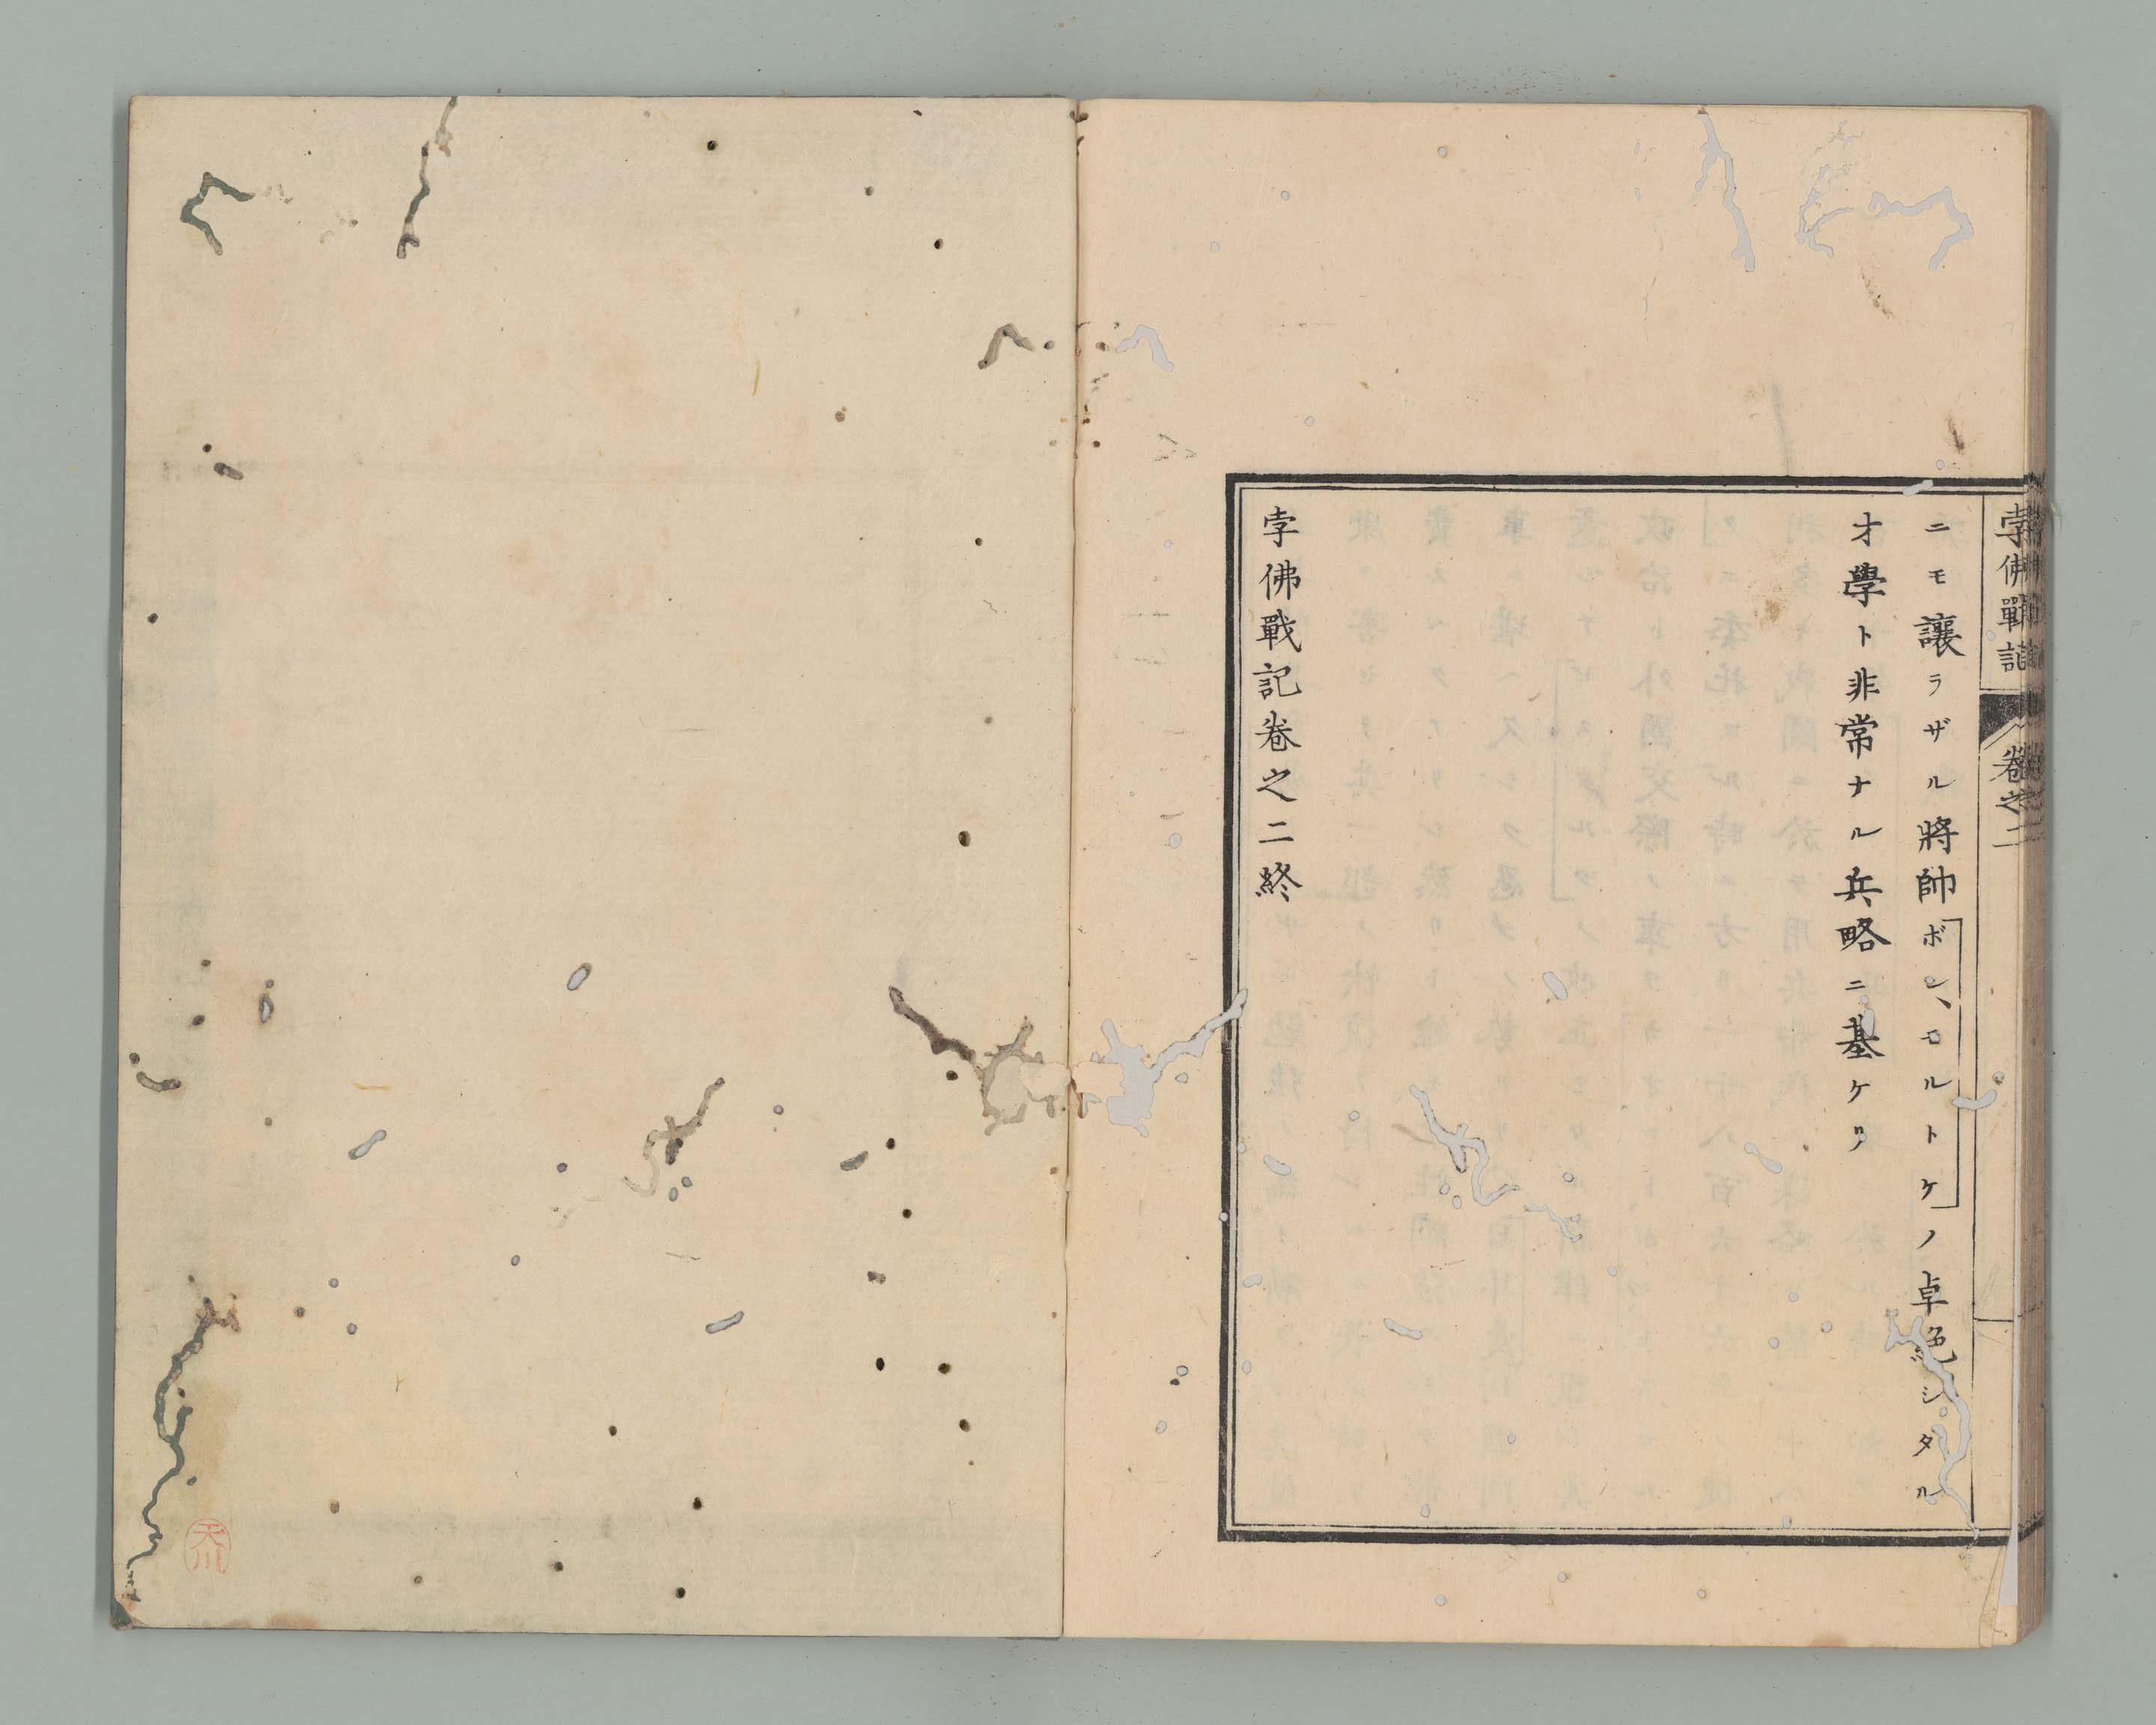 孛佛戰記
卷之二
ニモ讓ラザル將帥ボン、モルトケノ卓絶シタル
才學ト非常ナル兵略ニ基ケリ
孛佛戰記卷之二終
天川